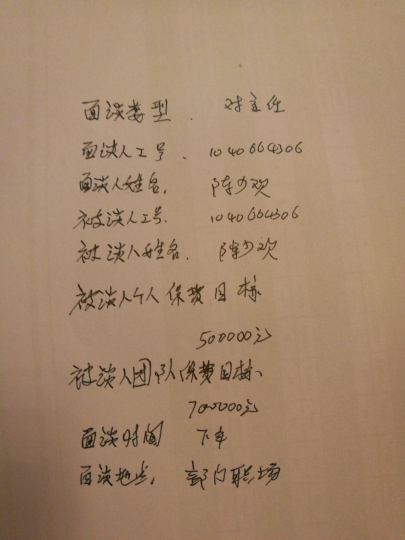 面谈类型. 对主任
面谈人工号. 1040664306
面谈人姓名, 陈少欢
被谈人工号. 1040664306
被谈人姓名. 陈少欢
被谈人个人保费目标
500000元
被谈人团队保费目标、
7000000元
面谈时间 下午
面谈地点, 部门职场